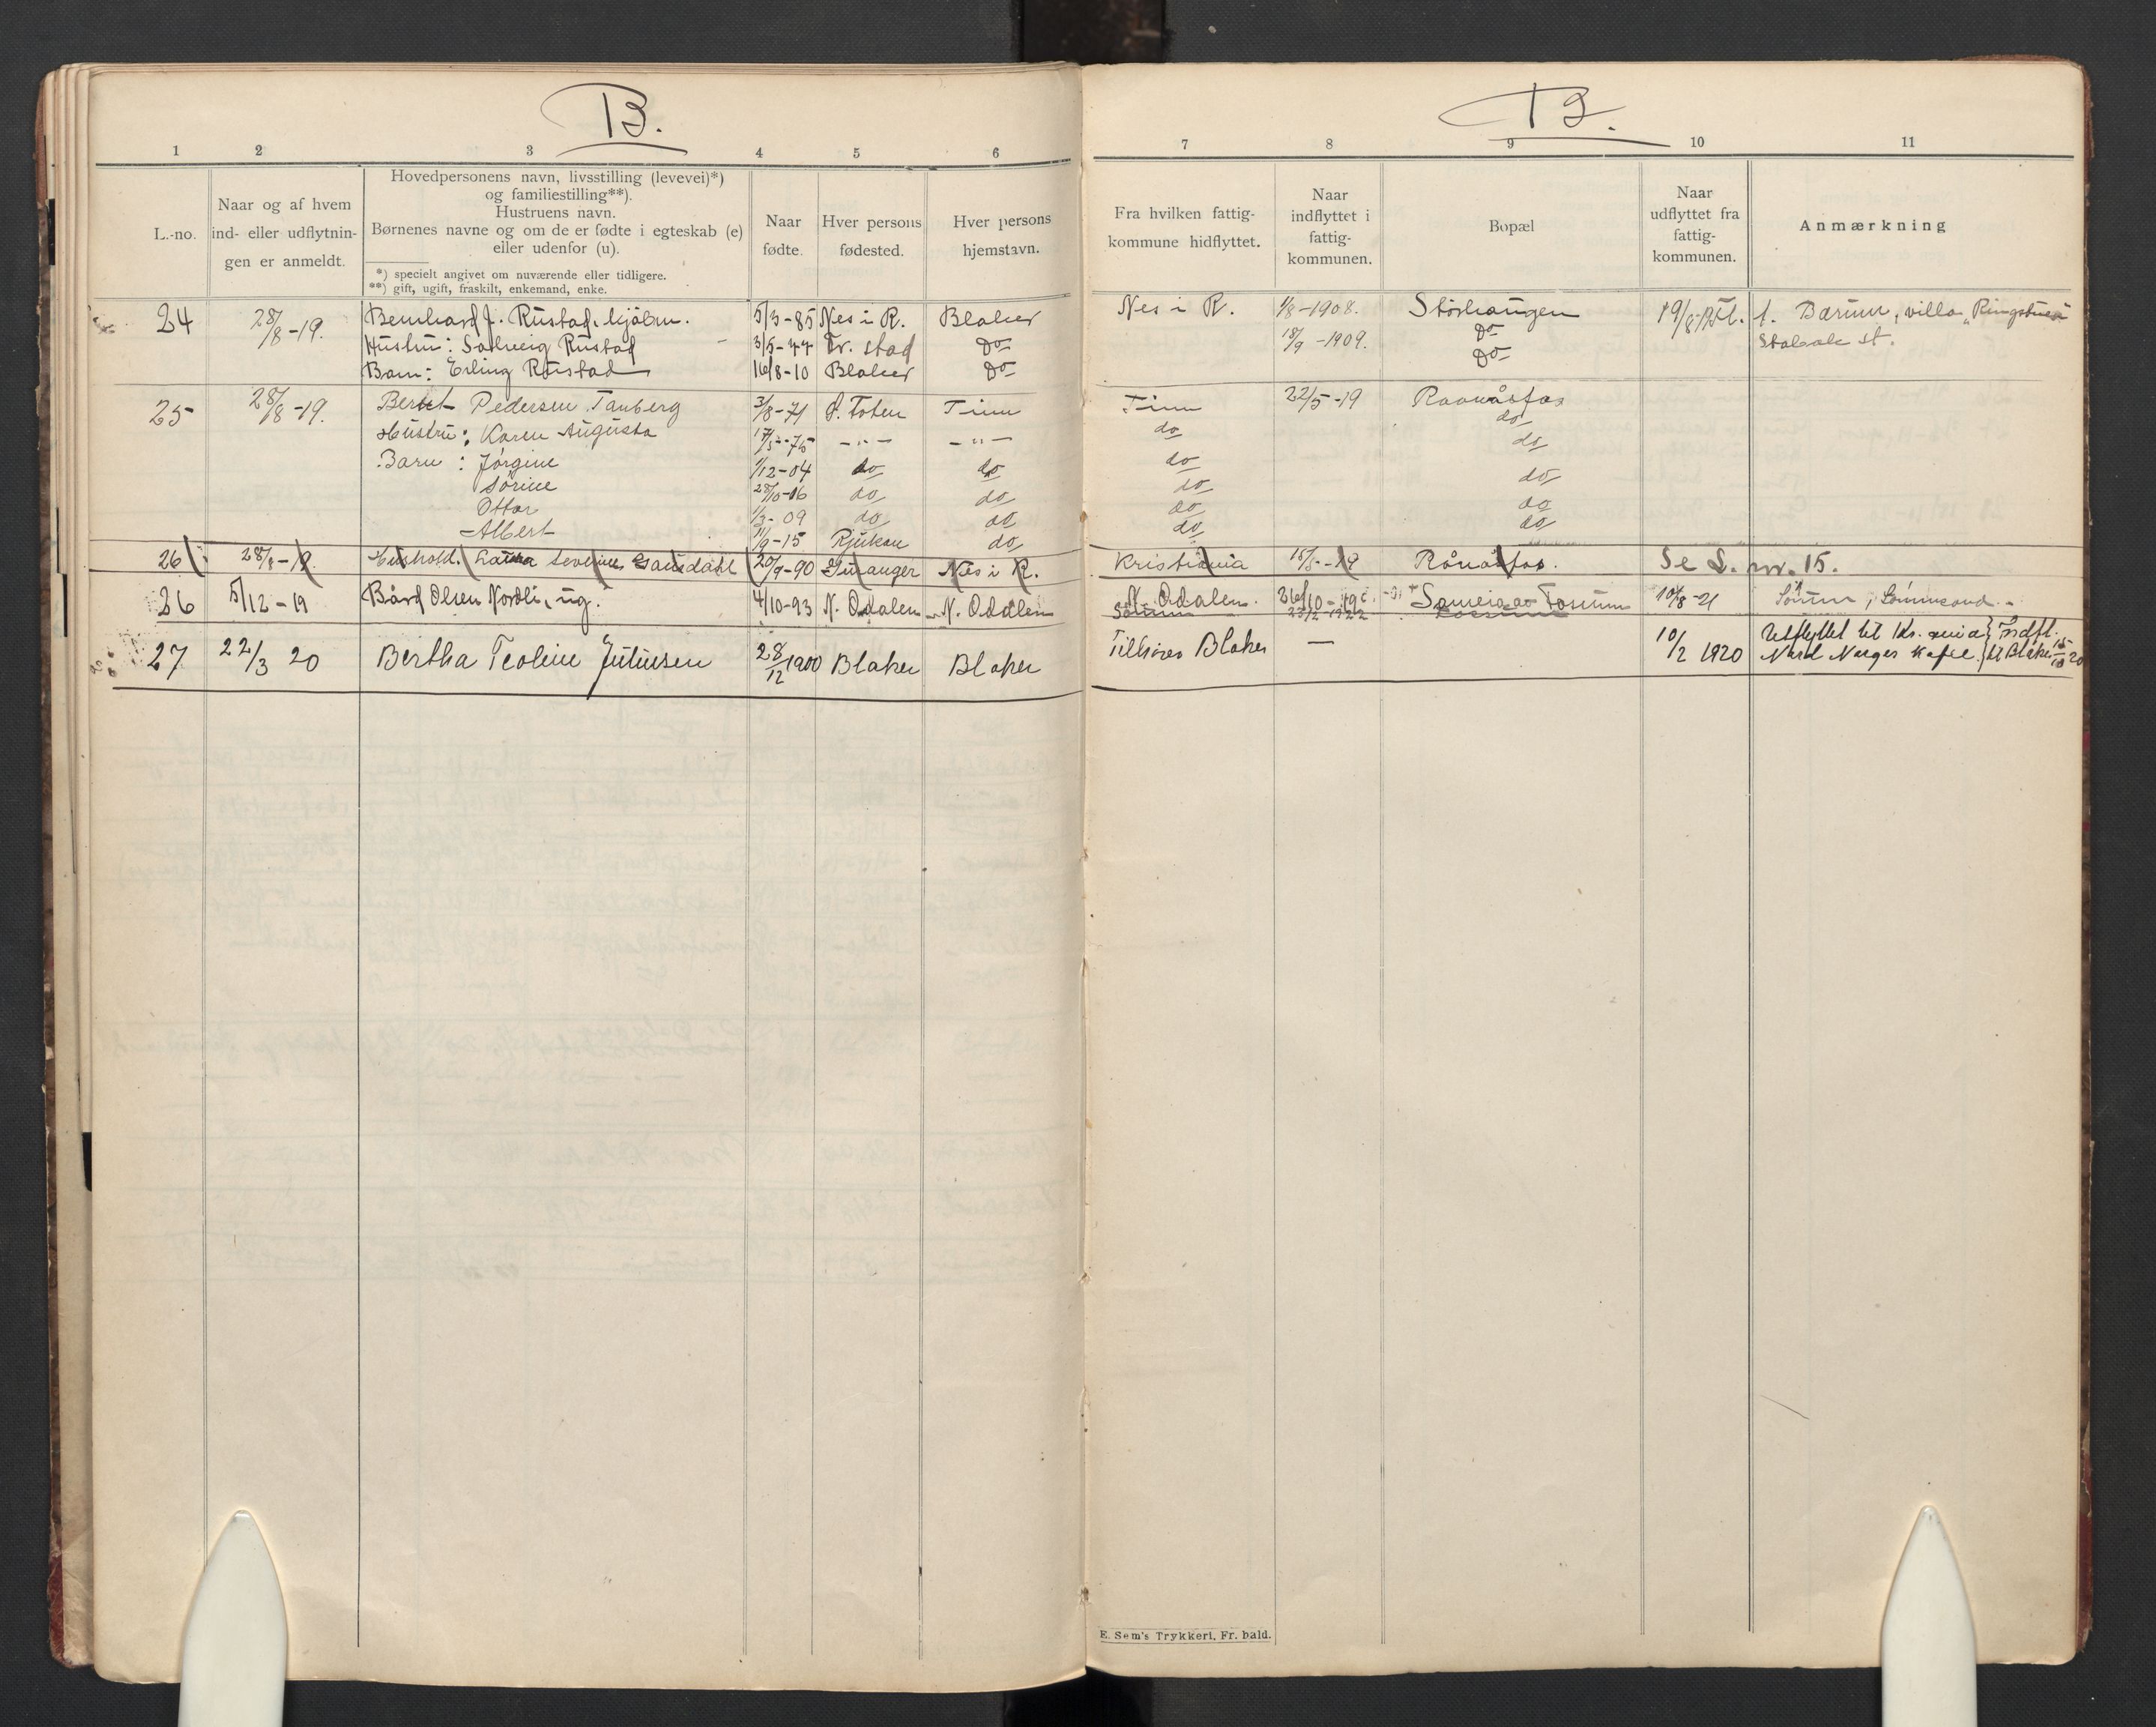 B.
1 2 3 4 5 6
L.-no.
Naar og af hvem
ind- eller udflytnin-
gen er anmeldt.
Hovedpersonens navn, livsstilling (levevei)*)
og familiestilling**).
Hustruens navn.
Børnenes navne og om de er fødte i egteskab (e)
eller udenfor (u).
*) specielt angivet om nuværende eller tidligere.
**) gift, ugift, fraskilt, enkemand, enke.
Naar
fødte.
Hver persons
fødested.
Hver persons
hjemstavn.
24 28/8-19. Bernhard J. Rustad. 5/3-85 Nes i R. Blaker
Hustru: Solveig Rustad 3/5-77 Fr. stad Do
Barn: Erling Rustad 16/8-10 Blaker Do
25 28/8-19. Pedersen Tanberg 3/8-71 Toten Tinn
Hustru: Karen Augusta 17/5-75 -"- -"-
Barn: Jørgine 1/12-04 do do
Sørine 28/10-06 do do
Ottar 1/3-09 do do
Albert 11/9-15 Rjukan do
26 28/8-19. Hushold. Laura Severine 20/9-90 Nes i R.
26 5/12-19 Bård Olsen Nordli, ug. 4/10-93 N. Odalen N. Odalen
27 22/3 20 Bertha Teoline Juliusen 28/12 1900 Blaker Blaker
B.
7 8 9 10 11
Fra hvilken fattig-
kommune hidflyttet.
Naar
indflyttet i
fattig-
kommunen.
Bopæl
Naar
udflyttet fra
fattig-
kommunen.
Anmærkning
Nes i R. 1/8-1908. Storhaugen 19/8 t. Bærum, villa "Ringstuen
18/9-1909. Do Stabæk st.
Do
Tinn 22/5-19 Raanåsfos
do do
do do
do do
do do
do do
Kristiania 15/5-19 Rånåsfos. Se L. nr. 15.
N. Odalen. 26/10-19 Fossum 10/8-21 Sørum,
Sørum 1922
Tilhører Blaker — 10/2 1920 Utflyttet til Kr.ania } Indfl.
Nord Norges Kafe. } til Blaker 20
E. Sem's Trykkeri, Fr. hald.